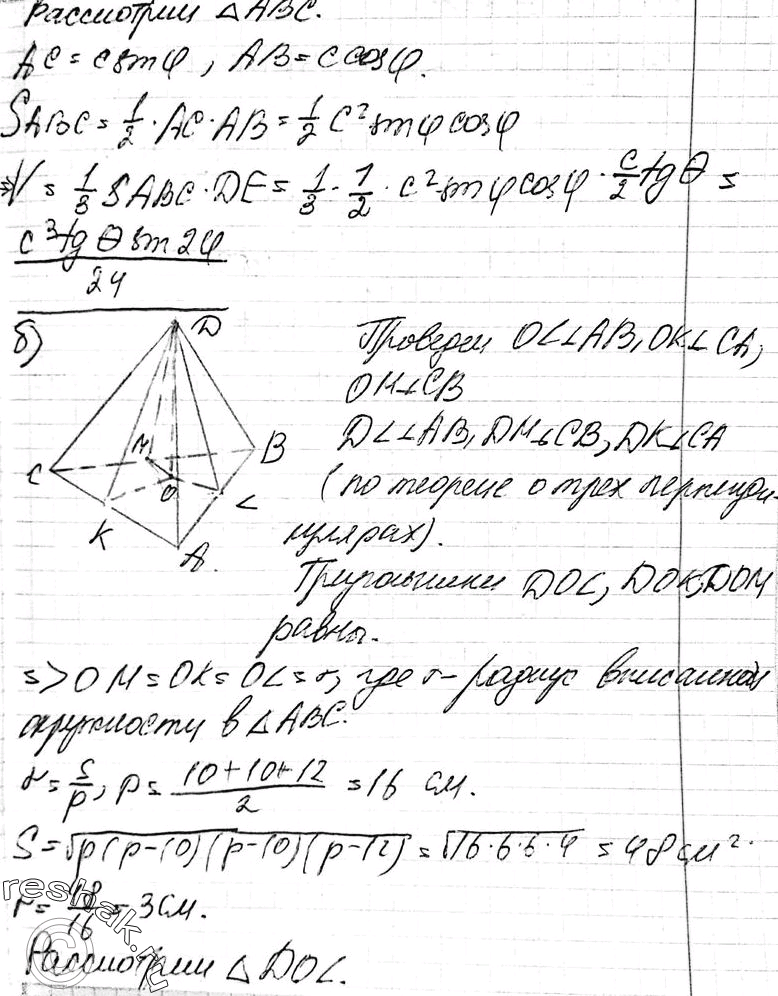 Рассмотрим △ABC.
AC = c sin φ, AB = c cos φ.
S ABC = 1/2 · AC · AB = 1/2 c² sin φ cos φ
=> V = 1/3 S ABC · DE = 1/3 · 1/2 · c² sin φ cos φ · c/2 tg θ =
c³ tg θ sin 2φ / 24
б)
D
Проведем OL⊥AB, OK⊥CA,
OM⊥CB
DL⊥AB, DM⊥CB, DK⊥CA
M B
C O L
(по теореме о трех перпенди-
K A
кулярах).
Треугольники DOL, DOK, DOM
равны.
=> OM = OK = OL = r, где r - радиус вписанной
окружности в △ABC.
r = S/p, p = (10+10+12)/2 = 16 см.
S = √(p(p-10)(p-10)(p-12)) = √(16·6·6·4) = 48 см².
r = 48/16 = 3 см.
Рассмотрим △DOL.
reshak.ru
©